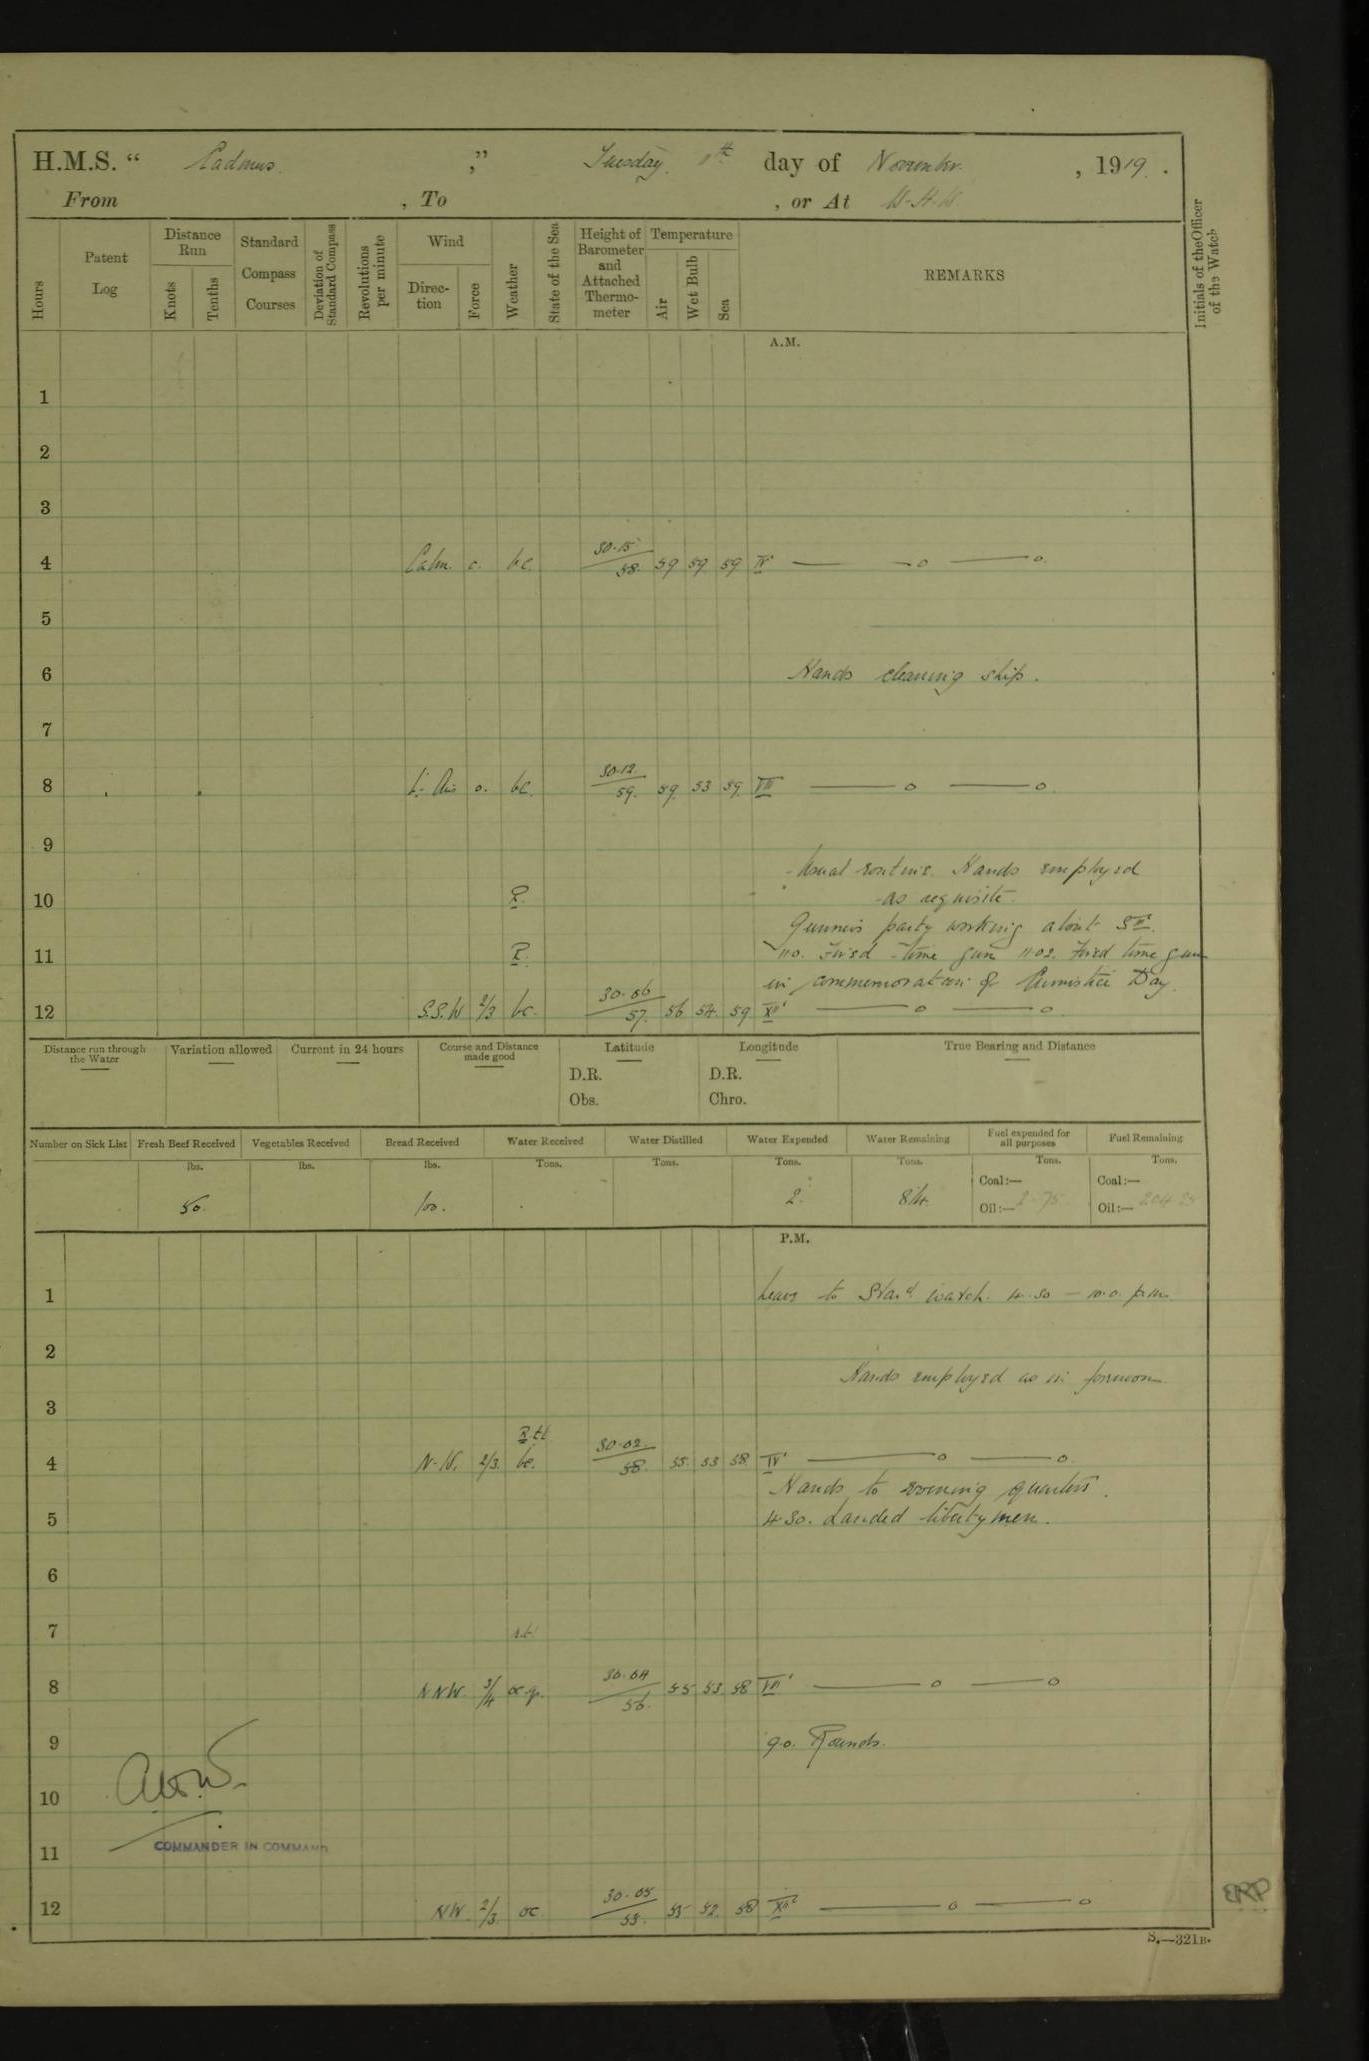 H.M.S. " Cadmus. ," Tuesday 11th day of November. , 1919 .
From , To , or At
Hours
Patent Log
Distance Run
Knots
Tenths
Standard Compass Courses
Deviation of Standard Compass
Revolutions per minute
Wind
Direc-tion
Force
Weather
State of the Sea
Height of Barometer and Attached Thermo-meter
Temperature
Air
Wet Bulb
Sea
REMARKS
Initials of the Officer of the Watch
A.M.
1
2
3
4 Calm. o. bc. 30.15 58. 59 59 59 IV
5
6 Hands cleaning ship.
7
8 Lt. Air o. bc. 30.12. 59. 59. 53 59. VIII
9
Usual routine. Hands employed
10 R. as requisite.
Gunner's party working about
11 R. 11.0. Fired time gun 11.02. Fired time gun
in commemoration of Armistice Day.
12 S.S.W 2/3 bc. 30.06 57. 56 54. 59 XII
Distance run through the Water
Variation allowed
Current in 24 hours
Course and Distance made good
Latitude
D.R.
Obs.
Longitude
D.R.
Chro.
True Bearing and Distance
Number on Sick List
Fresh Beef Received
Vegetables Received
Bread Received
Water Received
Water Distilled
Water Expended
Water Remaining
Fuel expended for all purposes
Fuel Remaining
lbs. lbs. lbs. Tons. Tons. Tons. Tons. Tons. Tons.
50. 100. 2. 84. Coal:— Oil:— 2.75 Coal:— Oil:— 204.25
P.M.
1 Leave to Star'd watch. 4.30 — 10.0. p.m.
2
Hands employed as in forenoon.
3
R.tl.
4 N.W. 2/3. bc. 30.02. 58. 55. 53 58 IV
Hands to evening quarters.
5 4.30. Landed liberty men.
6
7
8 NNW. 3/4 oc.q. 30.04 56. 55 53. 58 VIII
9 9.0. Rounds.
10
11 COMMANDER IN COMMAND
12 NW. 2/3. oc. 30.05 55. 55 52. 58 XII
ERP
S.—321B.